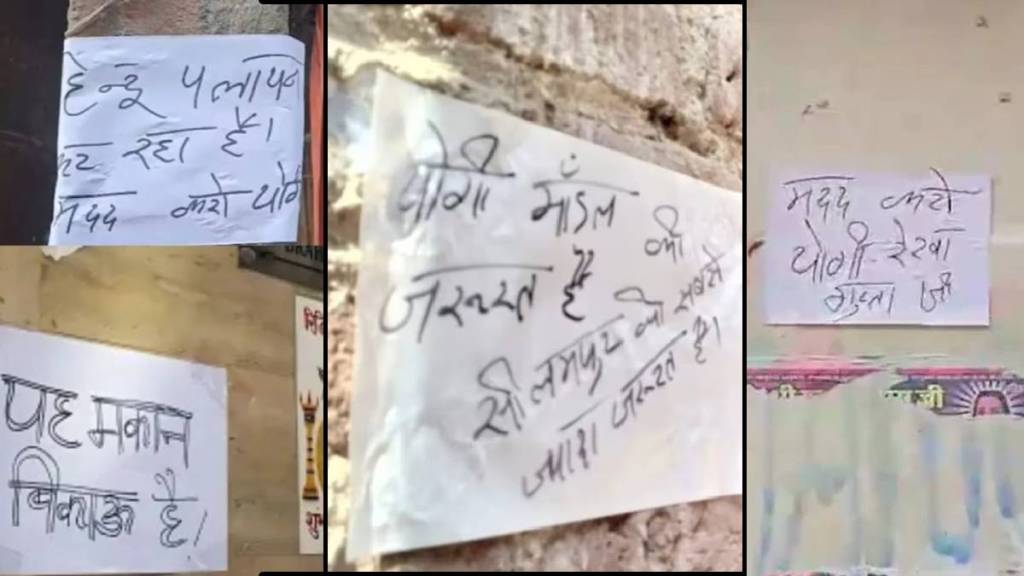 हिन्दू पलायन
कर रहा है।
मदद करो योगी
यह मकान
बिकाऊ है!
योगी मॉडल की
जरूरत है
सीलमपुर को सबसे
ज्यादा जरूरत है।
मदद करो
योगी-रेखा
गुप्ता जी